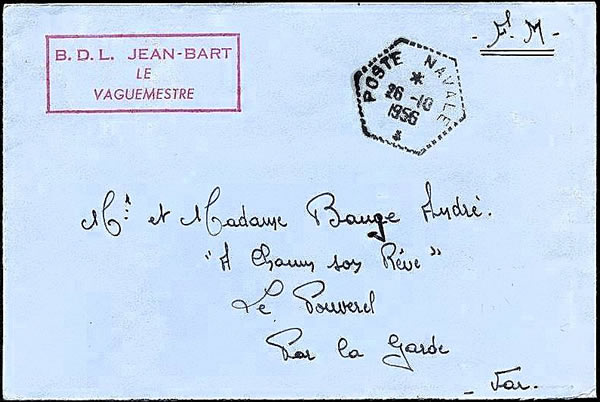 B. D. L. JEAN-BART
LE
VAGUEMESTRE
POSTE NAVALE
*
26 -10
1956
*
- F.M -
Mr et Madame Bauge André.
"A Chacun son Rêve"
Le Pouverel
Par la Garde
- Var.